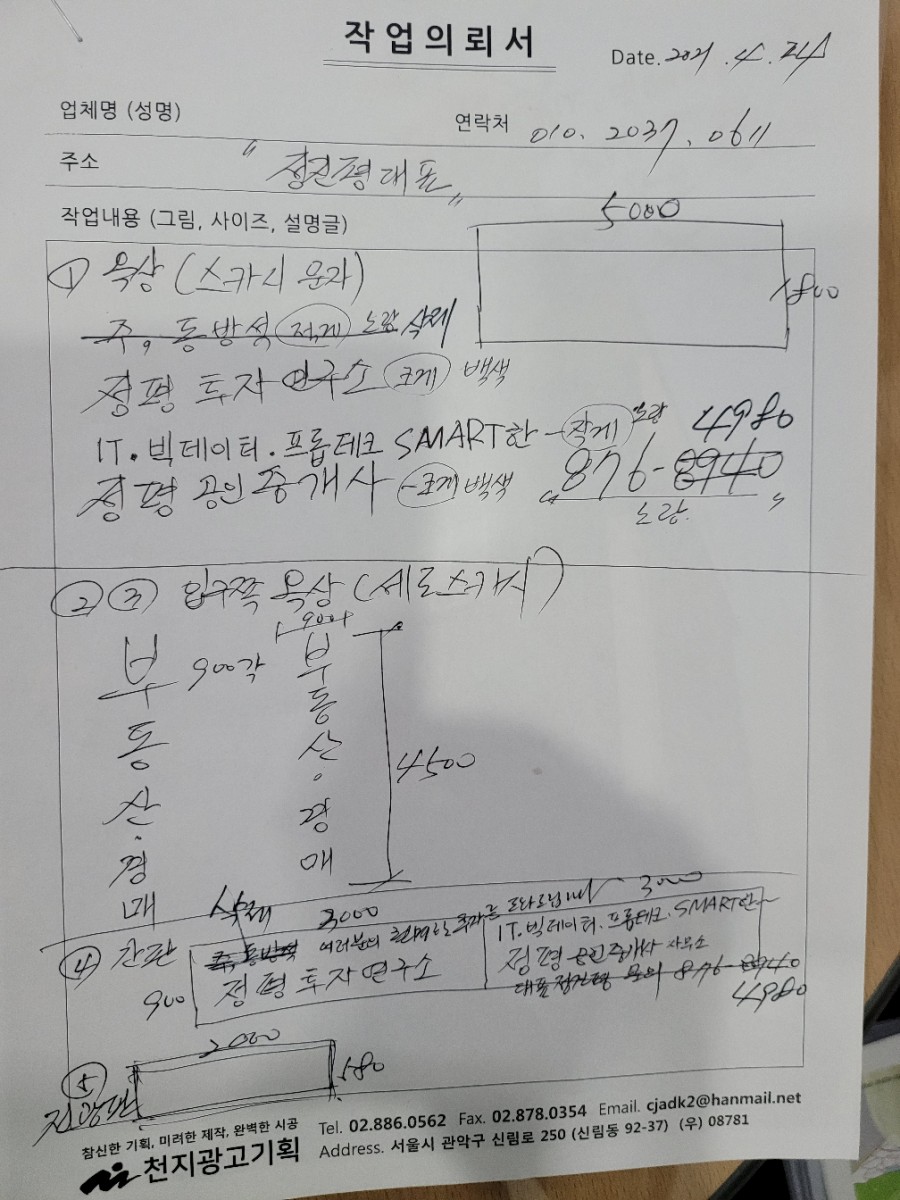 작업의뢰서
Date. 2021. 4. 24
업체명 (성명)
연락처 010. 2037. 0611
주소 " 정진평대표 "
작업내용 (그림, 사이즈, 설명글)
5000
1800
① 옥상 (스카시 문자)
주, 동방석 적게 노랑 삭제
정평 투자연구소 크게 백색
IT. 빅데이터. 프롭테크 SMART한 - 작게 노랑 4980
정평 공인중개사 - 크게 백색 "876-8940"
노랑
② ③ 입구쪽 옥상 (세로스카시)
900각
부 900각 부
동 동
산 산 4500
· ·
경 경
매 매
삭제 3000 3000
④ 간판 주, 동방석 여러분의 투자를 도와드립니다
IT. 빅데이터. 프롭테크. SMART한
900 정평투자연구소 정평 공인중개사 사무소
대표 정진평 문의 876-8940
4980
⑤ 2000
전광판 580
참신한 기획, 미려한 제작, 완벽한 시공
천지광고기획
Tel. 02.886.0562 Fax. 02.878.0354 Email. cjadk2@hanmail.net
Address. 서울시 관악구 신림로 250 (신림동 92-37) (우) 08781